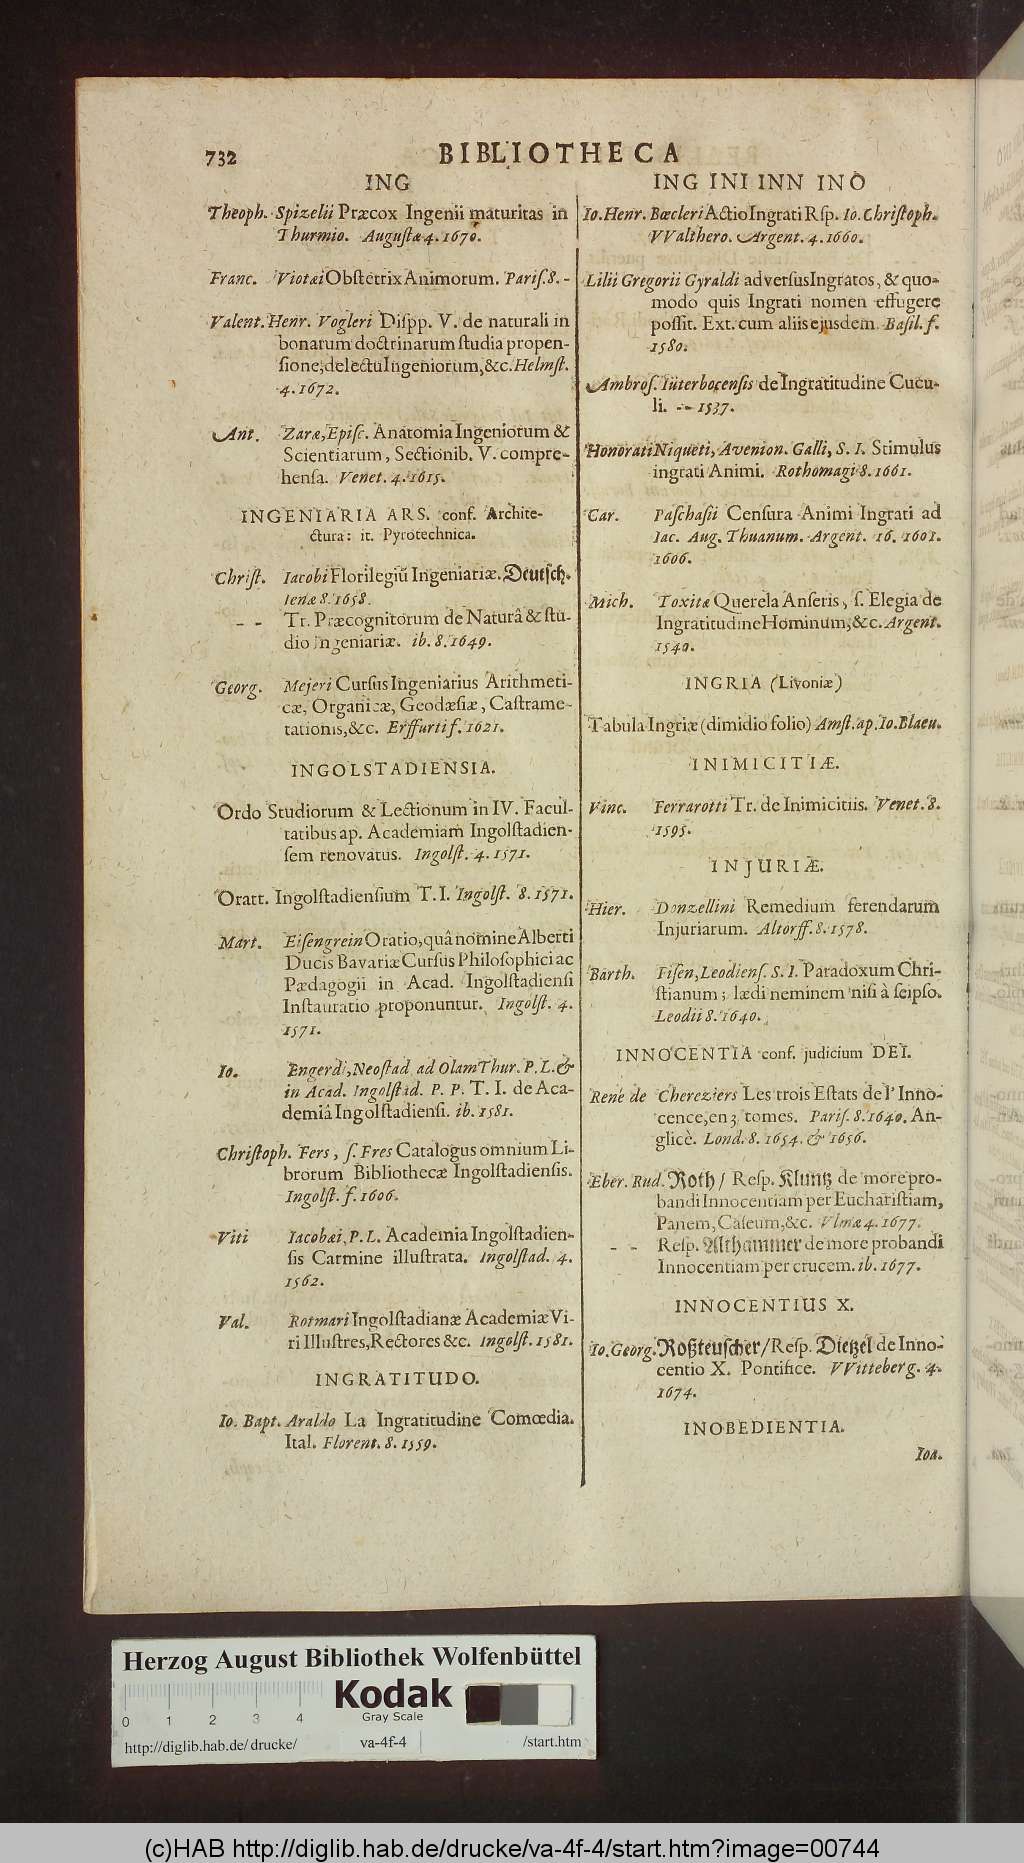 732
BIBLIOTHECA
ING
Theoph. Spizelii Præcox Ingenii maturitas in
Thurmio. Augustæ 4. 1670.
Franc. Viotæi Obstetrix Animorum. Paris. 8. -
Valent. Henr. Vogleri Dispp. V. de naturali in
bonarum doctrinarum studia propen-
sione, delectu Ingeniorum, &c. Helmst.
4. 1672.
Ant. Zaræ, Episc. Anatomia Ingeniorum &
Scientiarum, Sectionib. V. compre-
hensa. Venet. 4. 1615.
INGENIARIA ARS. conf. Archite-
ctura: it. Pyrotechnica.
Christ. Iacobi Florilegiũ Ingeniariæ. Deutsch.
Ienæ 8. 1658.
- - Tr. Præcognitorum de Naturâ & stu-
dio ingeniariæ. ib. 8. 1649.
Georg. Mejeri Cursus Ingeniarius Arithmeti-
cæ, Organicæ, Geodæsiæ, Castrame-
tationis, &c. Erffurti f. 1621.
INGOLSTADIENSIA.
Ordo Studiorum & Lectionum in IV. Facul-
tatibus ap. Academiam Ingolstadien-
sem renovatus. Ingolst. 4. 1571.
Oratt. Ingolstadiensium T. I. Ingolst. 8. 1571.
Mart. Eisengrein Oratio, quâ nomine Alberti
Ducis Bavariæ Cursus Philosophici ac
Pædagogii in Acad. Ingolstadiensi
Instauratio proponuntur. Ingolst. 4.
1571.
Io. Engerdi, Neostad. ad Olam Thur. P. L. &
in Acad. Ingolstad. P. P. T. I. de Aca-
demiâ Ingolstadiensi. ib. 1581.
Christoph. Fers, s. Fres Catalogus omnium Li-
brorum Bibliothecæ Ingolstadiensis.
Ingolst. f. 1606.
Viti Iacobæi, P. L. Academia Ingolstadien-
sis Carmine illustrata. Ingolstad. 4.
1562.
Val. Rotmari Ingolstadianæ Academiæ Vi-
ri Illustres, Rectores &c. Ingolst. 1581.
INGRATITUDO.
Io. Bapt. Araldo La Ingratitudine Comœdia.
Ital. Florent. 8. 1559.
ING INI INN INO
Io. Henr. Bœcleri Actio Ingrati Rsp. Io. Christoph.
VValthero. Argent. 4. 1660.
Lilii Gregorii Gyraldi adversus Ingratos, & quo-
modo quis Ingrati nomen effugere
possit. Ext. cum aliis ejusdem. Basil. f.
1580.
Ambros. Iüterbocensis de Ingratitudine Cucu-
li. - - 1537.
Honorati Niqueti, Avenion. Galli, S. I. Stimulus
ingrati Animi. Rothomagi 8. 1661.
Car. Paschasii Censura Animi Ingrati ad
Iac. Aug. Thuanum. Argent. 16. 1601.
1606.
Mich. Toxitæ Querela Anseris, s. Elegia de
Ingratitudine Hominum, &c. Argent.
1540.
INGRIA (Livoniæ)
Tabula Ingriæ (dimidio folio) Amst. ap. Io. Blaeu.
INIMICITIÆ.
Vinc. Ferrarotti Tr. de Inimicitiis. Venet. 8.
1595.
INJURIÆ.
Hier. Donzellini Remedium ferendarum
Injuriarum. Altorff. 8. 1578.
Barth. Fisen, Leodiens. S. I. Paradoxum Chri-
stianum; lædi neminem nisi à seipso.
Leodii 8. 1640.
INNOCENTIA conf. judicium DEI.
René de Chereziers Les trois Estats de l' Inno-
cence, en 3. tomes. Paris. 8. 1640. An-
glicè. Lond. 8. 1654. & 1656.
Eber. Rud. Roth / Resp. Kluntz de more pro-
bandi Innocentiam per Eucharistiam,
Panem, Caseum, &c. Vlmæ 4. 1677.
- - Resp. Althammer de more probandi
Innocentiam per crucem. ib. 1677.
INNOCENTIUS X.
Io. Georg. Roßteuscher / Resp. Dietzel de Inno-
centio X. Pontifice. VVitteberg. 4.
1674.
INOBEDIENTIA.
Ioa.
Herzog August Bibliothek Wolfenbüttel
Kodak
Gray Scale
0 1 2 3 4
http://diglib.hab.de/drucke/ va-4f-4 /start.htm
(c)HAB http://diglib.hab.de/drucke/va-4f-4/start.htm?image=00744